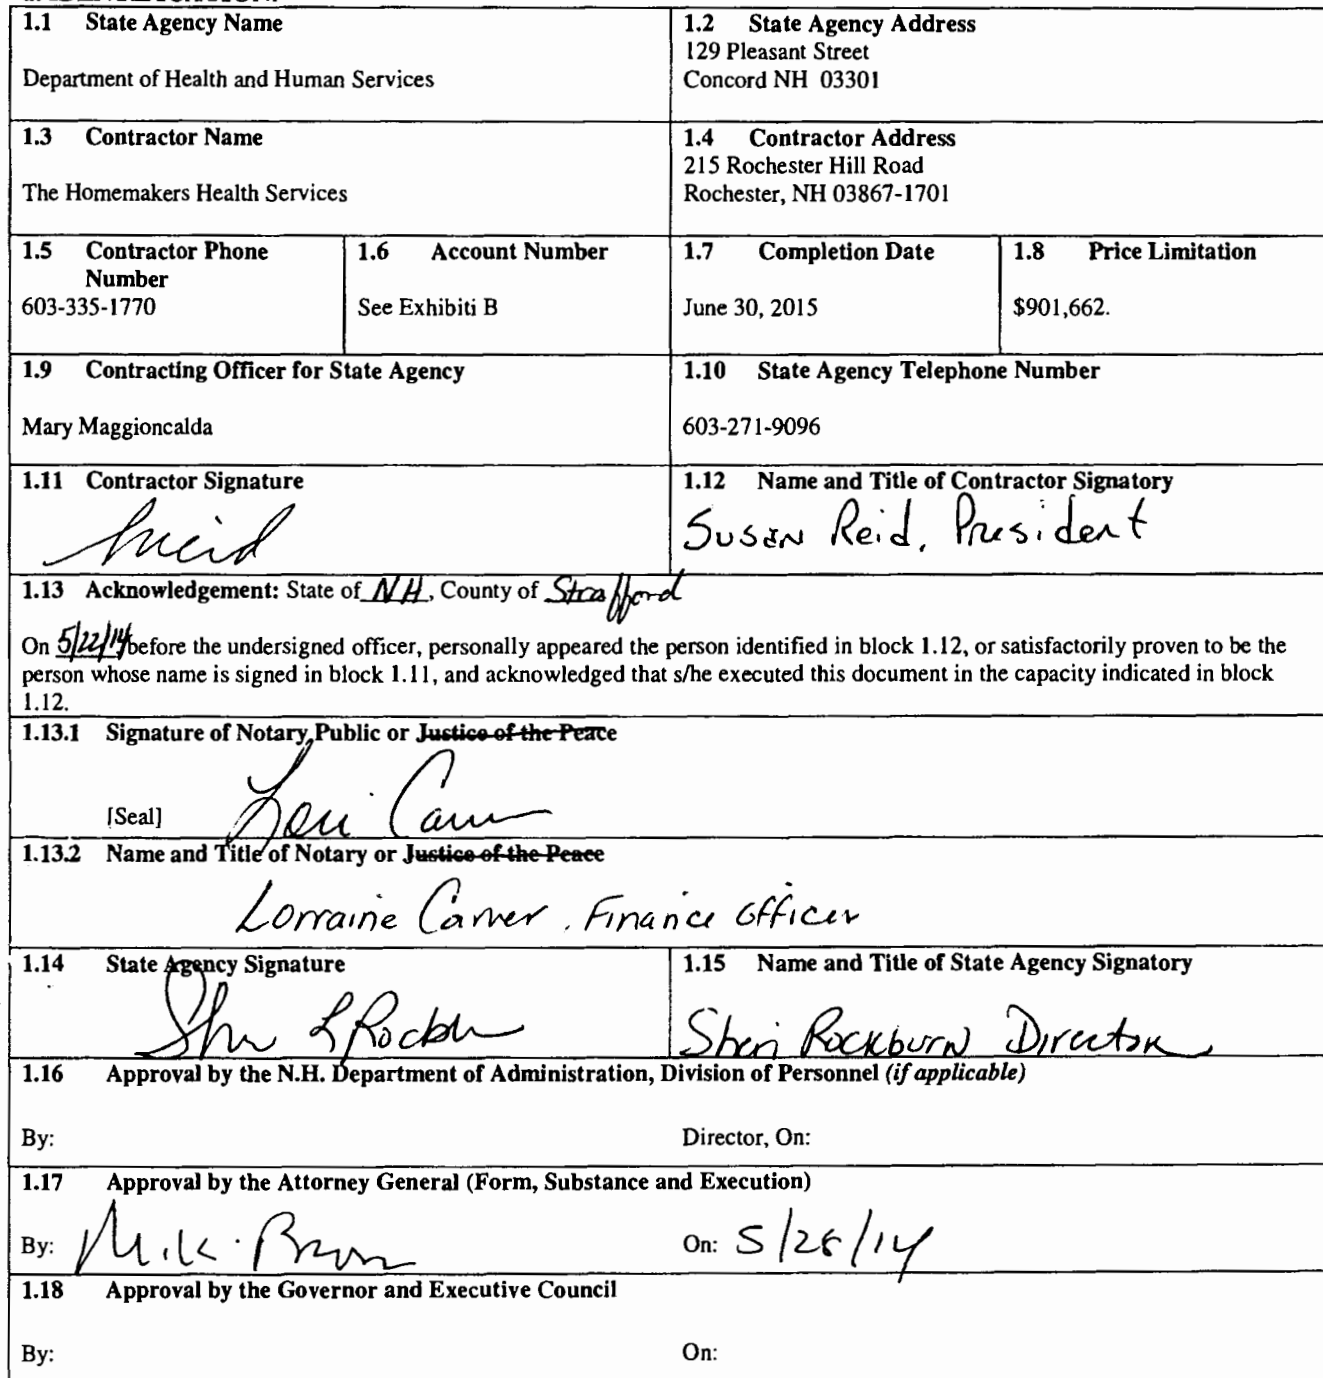 1.1 State Agency Name
Department of Health and Human Services
1.2 State Agency Address
129 Pleasant Street
Concord NH 03301
1.3 Contractor Name
The Homemakers Health Services
1.4 Contractor Address
215 Rochester Hill Road
Rochester, NH 03867-1701
1.5 Contractor Phone
Number
603-335-1770
1.6 Account Number
See Exhibiti B
1.7 Completion Date
June 30, 2015
1.8 Price Limitation
$901,662.
1.9 Contracting Officer for State Agency
Mary Maggioncalda
1.10 State Agency Telephone Number
603-271-9096
1.11 Contractor Signature
1.12 Name and Title of Contractor Signatory
Susan Reid, President
1.13 Acknowledgement: State of NH, County of Strafford
On 5/22/14 before the undersigned officer, personally appeared the person identified in block 1.12, or satisfactorily proven to be the
person whose name is signed in block 1.11, and acknowledged that s/he executed this document in the capacity indicated in block
1.12.
1.13.1 Signature of Notary Public or Justice of the Peace
[Seal]
1.13.2 Name and Title of Notary or Justice of the Peace
Lorraine Carver, Finance Officer
1.14 State Agency Signature
1.15 Name and Title of State Agency Signatory
Sheri Rockburn Director
1.16 Approval by the N.H. Department of Administration, Division of Personnel (if applicable)
By:
Director, On:
1.17 Approval by the Attorney General (Form, Substance and Execution)
By:
On: 5/28/14
1.18 Approval by the Governor and Executive Council
By:
On: